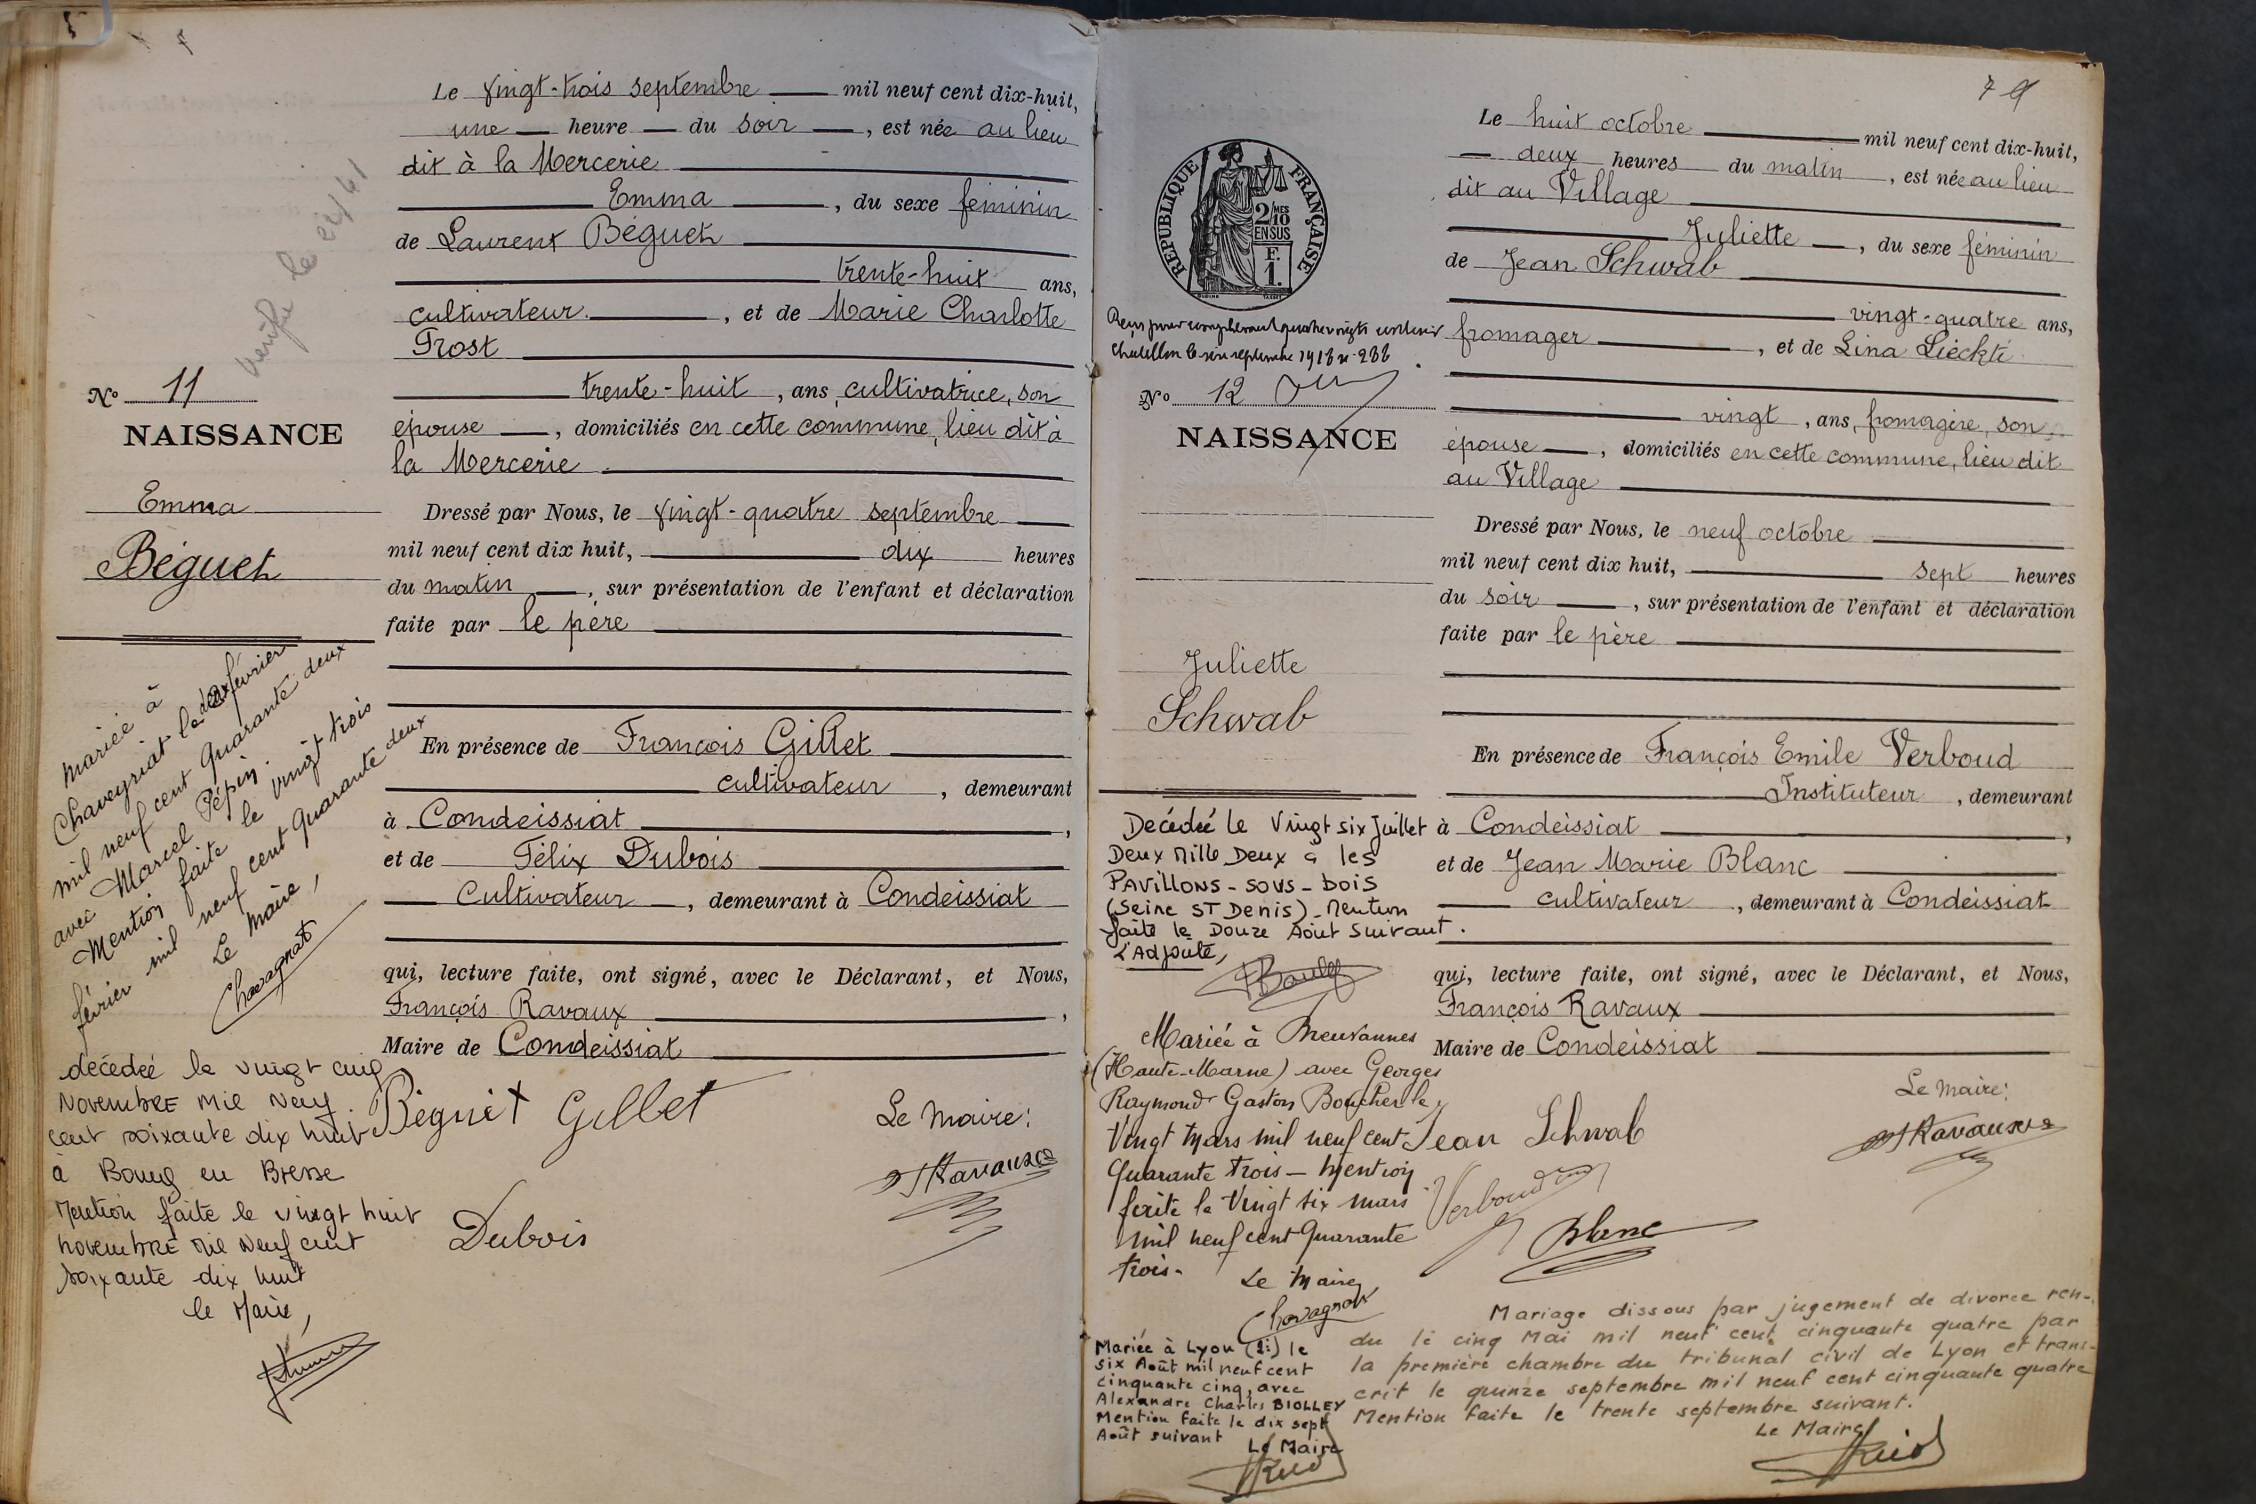 Le vingt-trois septembre mil neuf cent dix-huit,
une heure du soir, est née au lieu
dit à la Mercerie
Emma, du sexe féminin
de Laurent Béguet
trente-huit ans,
cultivateur, et de Marie Charlotte
Prost
trente-huit, ans, cultivatrice, son
épouse, domiciliés en cette commune, lieu dit à
la Mercerie.
Dressé par Nous, le vingt-quatre septembre
mil neuf cent dix huit, dix heures
du matin, sur présentation de l'enfant et déclaration
faite par le père
En présence de François Gillet
cultivateur, demeurant
à Condeissiat,
et de Félix Dubois
cultivateur, demeurant à Condeissiat
qui, lecture faite, ont signé, avec le Déclarant, et Nous,
François Ravaux,
Maire de Condeissiat
Béguet Gillet
Le Maire:
Ravaux
Dubois
No 11
NAISSANCE
Emma
Béguet
mariée à
Chaveyriat le deux février
mil neuf cent quarante deux
avec Marcel Pépin.
Mention faite le vingt trois
février mil neuf cent quarante deux
Le Maire,
Chavagnat
décédée le vingt cinq
Novembre mil neuf
cent soixante dix huit
à Bourg en Bresse
Mention faite le vingt huit
novembre mil neuf cent
soixante dix huit
le Maire,
79
Le huit octobre mil neuf cent dix-huit,
deux heures du matin, est née au lieu
dit au Village
Juliette, du sexe féminin
de Jean Schwab
vingt-quatre ans,
fromager, et de Lina Liechti
vingt, ans, fromagère, son
épouse, domiciliés en cette commune, lieu dit
au Village
Dressé par Nous, le neuf octobre
mil neuf cent dix huit, sept heures
du soir, sur présentation de l'enfant et déclaration
faite par le père
En présence de François Emile Verboud
Instituteur, demeurant
à Condeissiat,
et de Jean Marie Blanc
cultivateur, demeurant à Condeissiat
qui, lecture faite, ont signé, avec le Déclarant, et Nous,
François Ravaux
Maire de Condeissiat
Le Maire:
Jean Schwab
Ravaux
Verboud
Blanc
RÉPUBLIQUE FRANÇAISE
2/10 MES
EN SUS
F.
1.
No 12
NAISSANCE
Juliette
Schwab
Decédée le vingt six Juillet
Deux Mille Deux à les
PAVILLONS-SOUS-BOIS
(Seine ST Denis)_Mention
faite le Douze Août suivant.
L'Adjointe,
Mariée à Breuvannes
(Haute-Marne) avec Georges
Raymond Gaston Boucher le
Vingt mars mil neuf cent
quarante trois - Mention
faite le Vingt six mars
mil neuf cent quarante
trois.
Le Maire
Chavagnat
Mariée à Lyon (2:) le
six Août mil neuf cent
cinquante cinq, avec
Alexandre Charles BIOLLEY
Mention faite le dix sept
Août suivant Le Maire
Mariage dissous par jugement de divorce ren-
du le cinq Mai mil neuf cent cinquante quatre par
la première chambre du tribunal civil de Lyon et trans-
crit le quinze septembre mil neuf cent cinquante quatre
Mention faite le trente septembre suivant.
Le Maire